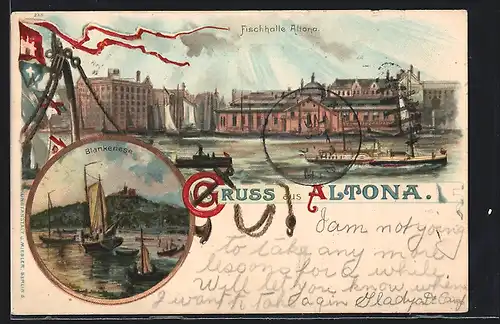 Fischhalle Altona.
Blankenese.
GRUSS aus ALTONA.
I am not going
to take any more
lessons for a while
Will let you know when
I want to take again Gladys